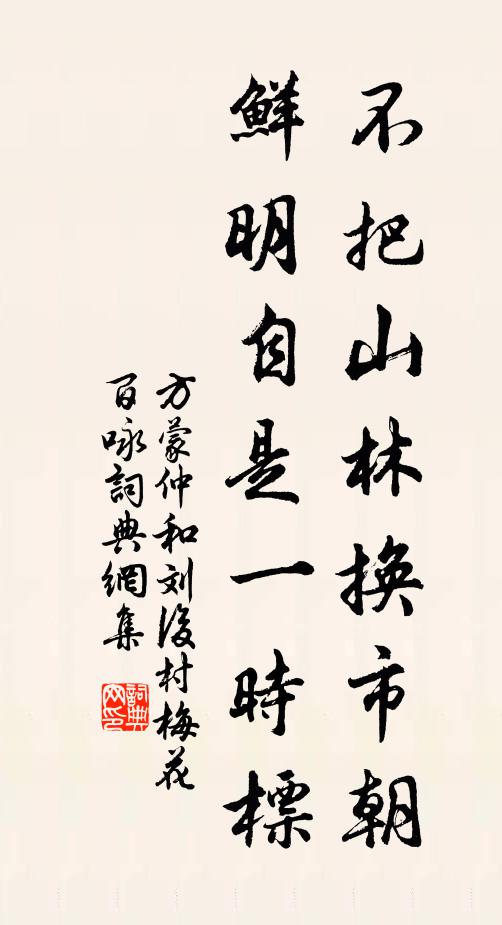 不把山林換市朝
鮮明自是一時標
方蒙仲和刘後村梅花
百咏詞典網集
詞典网印